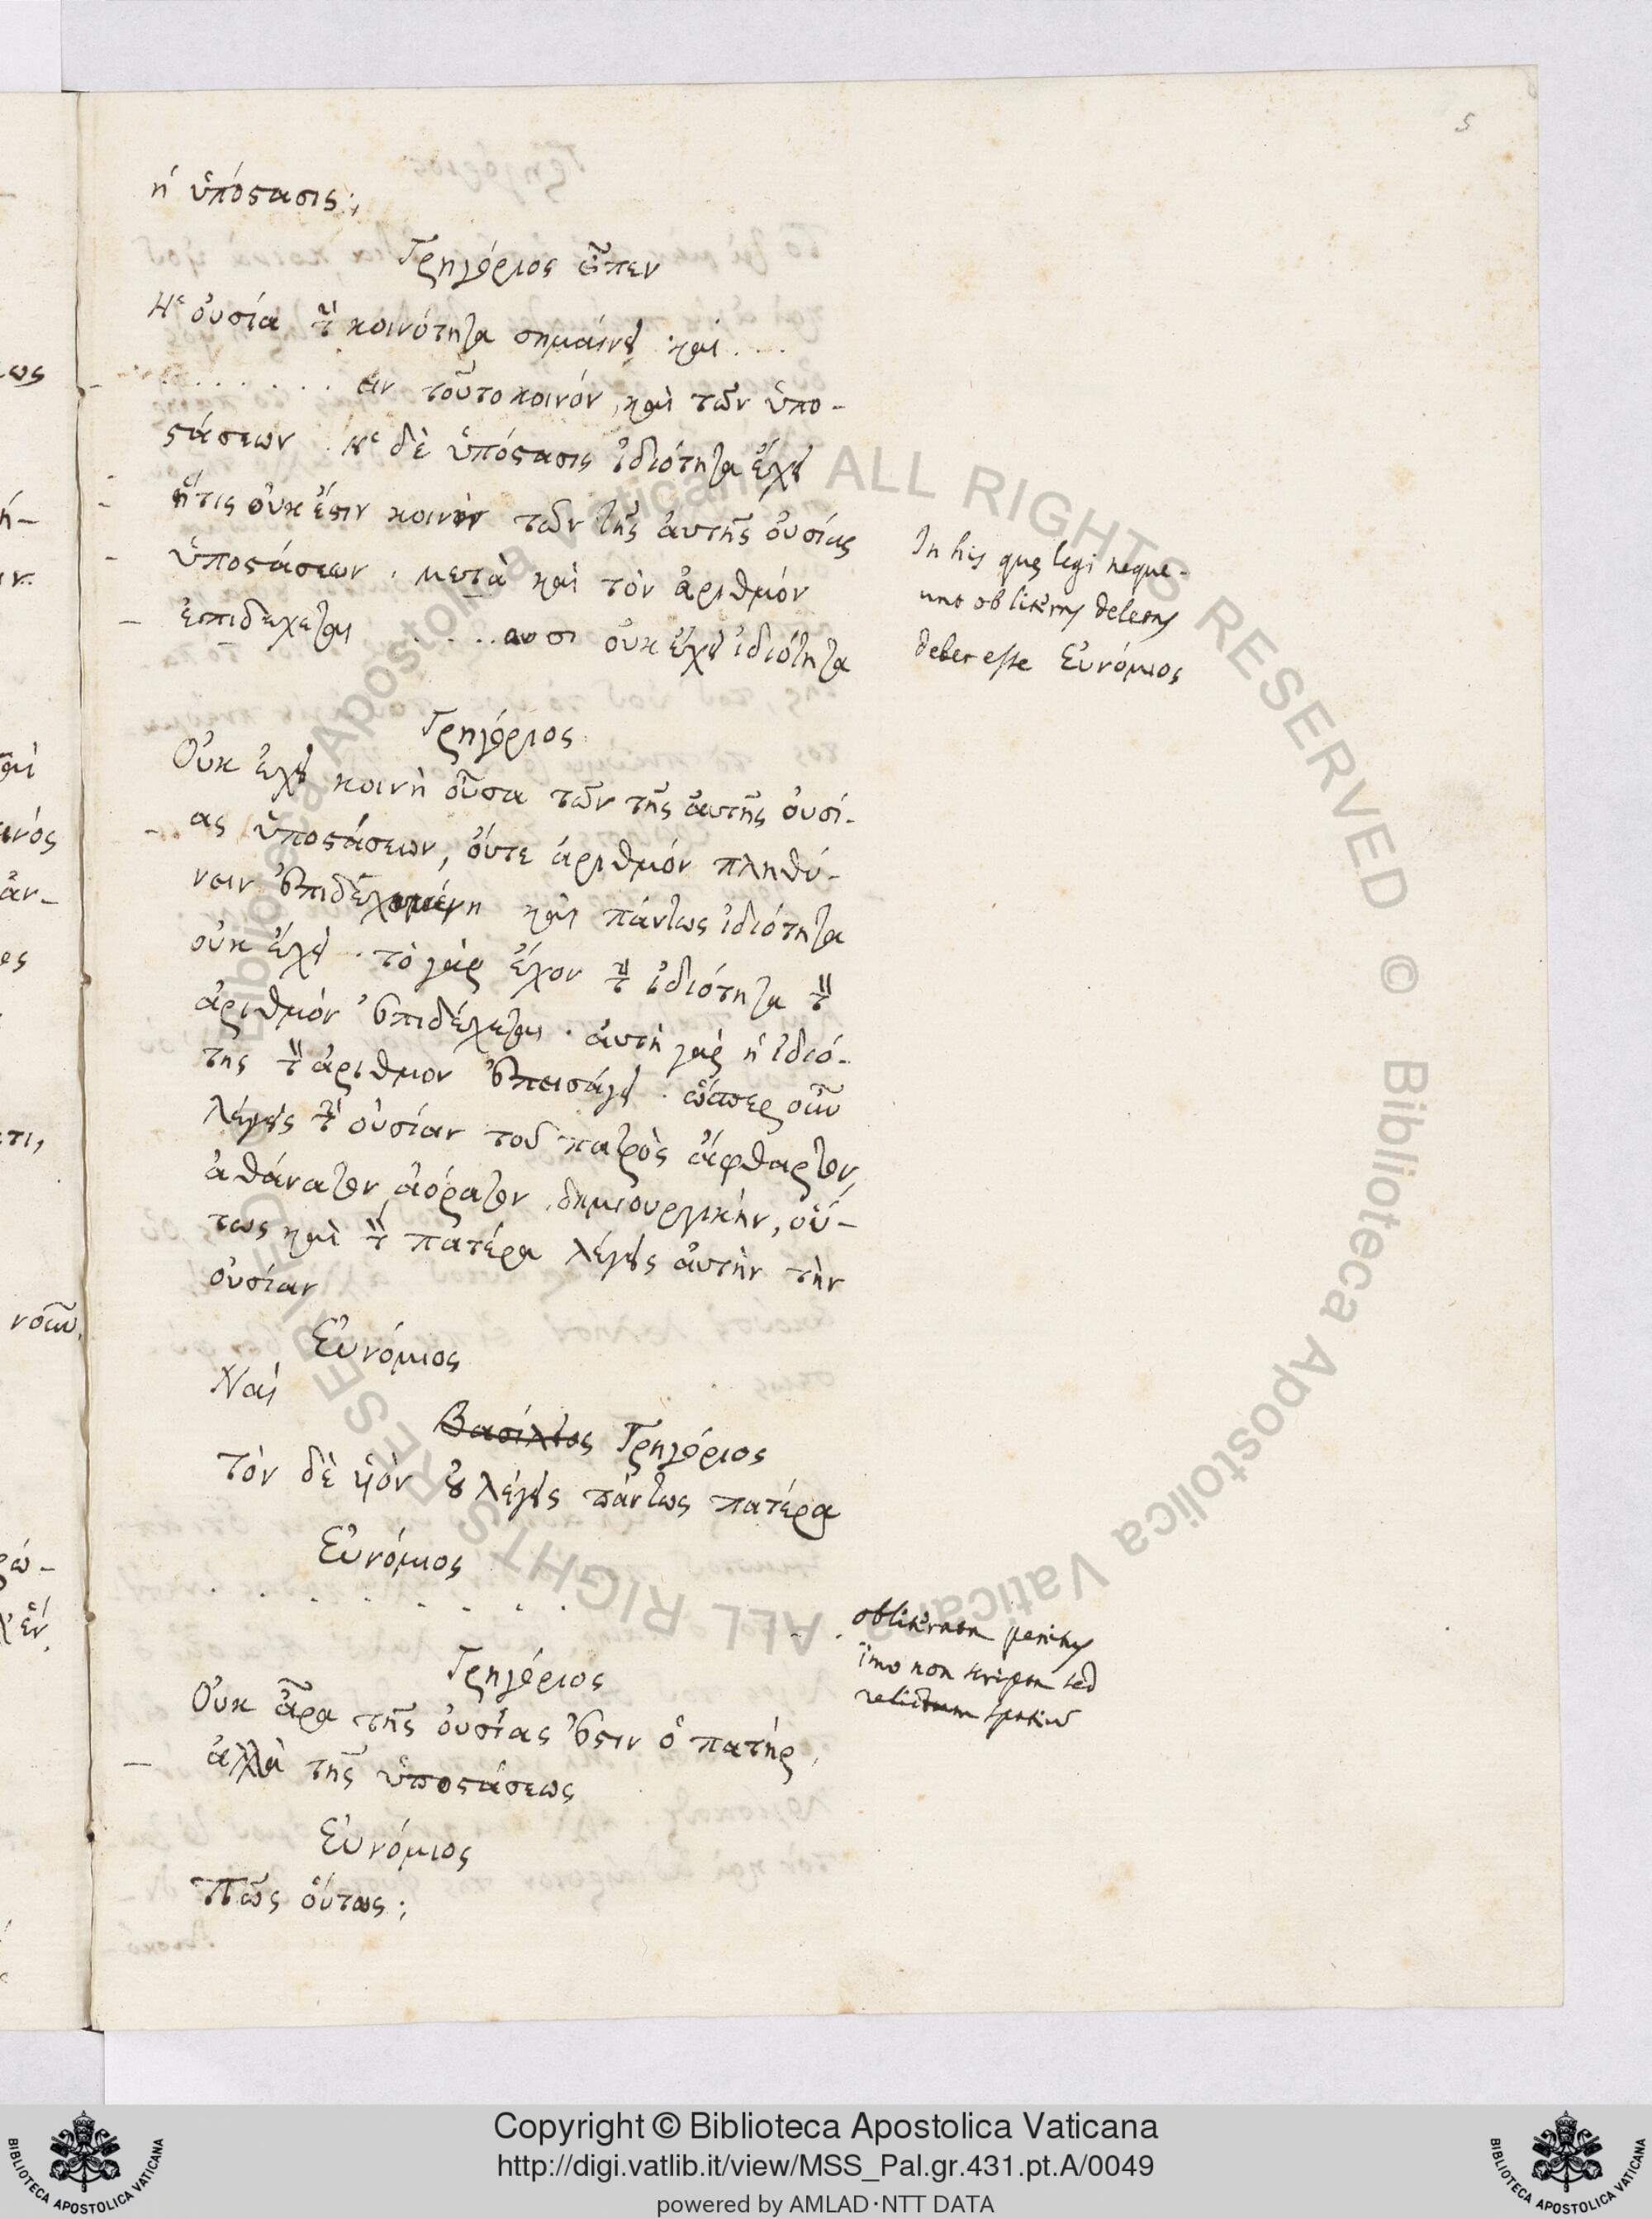 5
ἡ ὑπόστασις;
Γρηγόριος εἶπεν
Ἡ οὐσία τὴν κοινότητα σημαίνει καὶ ....
........ αν τοῦτο κοινόν, καὶ τῶν ὑπο-
στάσεων. Ἡ δὲ ὑπόστασις ἰδιότητα ἔχει
ἥτις οὐκ ἔστιν κοινὸν τῶν τῆς αὐτῆς οὐσίας
ὑποστάσεων. μετὰ καὶ τὸν ἀριθμόν
ἐπιδεχεται .... αυσι οὐκ ἔχει ἰδιότητα
In his quę legi neque-
unt ob literas deletas
debet esse Εὐνόμιος
Γρηγόριος
Οὐκ ἔχει κοινὴ οὖσα τῶν τῆς αὐτῆς οὐσί-
ας ὑποστάσεων, οὔτε ἀριθμόν πληθύ-
νειν ἐπιδεχομένη καὶ πάντως ἰδιότητα
οὐκ ἔχει. τὸ γὰρ ἔχον τὴν ἰδιότητα τὸν
ἀριθμόν ἐπιδέχεται. αὐτὴ γὰρ ἡ ἰδιό-
της τὸν ἀριθμον ἐπεισάγει. ὥσπερ οὖν
λέγεις τὴν οὐσίαν τοῦ πατρὸς ἄφθαρτον,
ἀθάνατον, ἀόρατον, δημιουργικήν, οὕ-
τως καὶ τὸν πατέρα λέγεις αὐτὴν τὴν
οὐσίαν
Εὐνόμιος
Ναί
Βασίλειος Γρηγόριος
τὸν δὲ υἱὸν οὐ λέγεις πάντως πατέρα
Εὐνόμιος
. . . . . . . . .
obliterata penitus
imo non scripta sed
relictum spatium
Γρηγόριος
Οὐκ ἆρα τῆς οὐσίας ἐστιν ὁ πατήρ,
ἀλλὰ τῆς ὑποστάσεως
Εὐνόμιος
Πῶς οὕτως;
Copyright © Biblioteca Apostolica Vaticana
http://digi.vatlib.it/view/MSS_Pal.gr.431.pt.A/0049
powered by AMLAD·NTT DATA
BIBLIOTECA APOSTOLICA VATICANA
BIBLIOTECA APOSTOLICA VATICANA
Biblioteca Apostolica Vaticana ALL RIGHTS RESERVED © Biblioteca Apostolica Vaticana ALL RIGHTS RESERVED ©